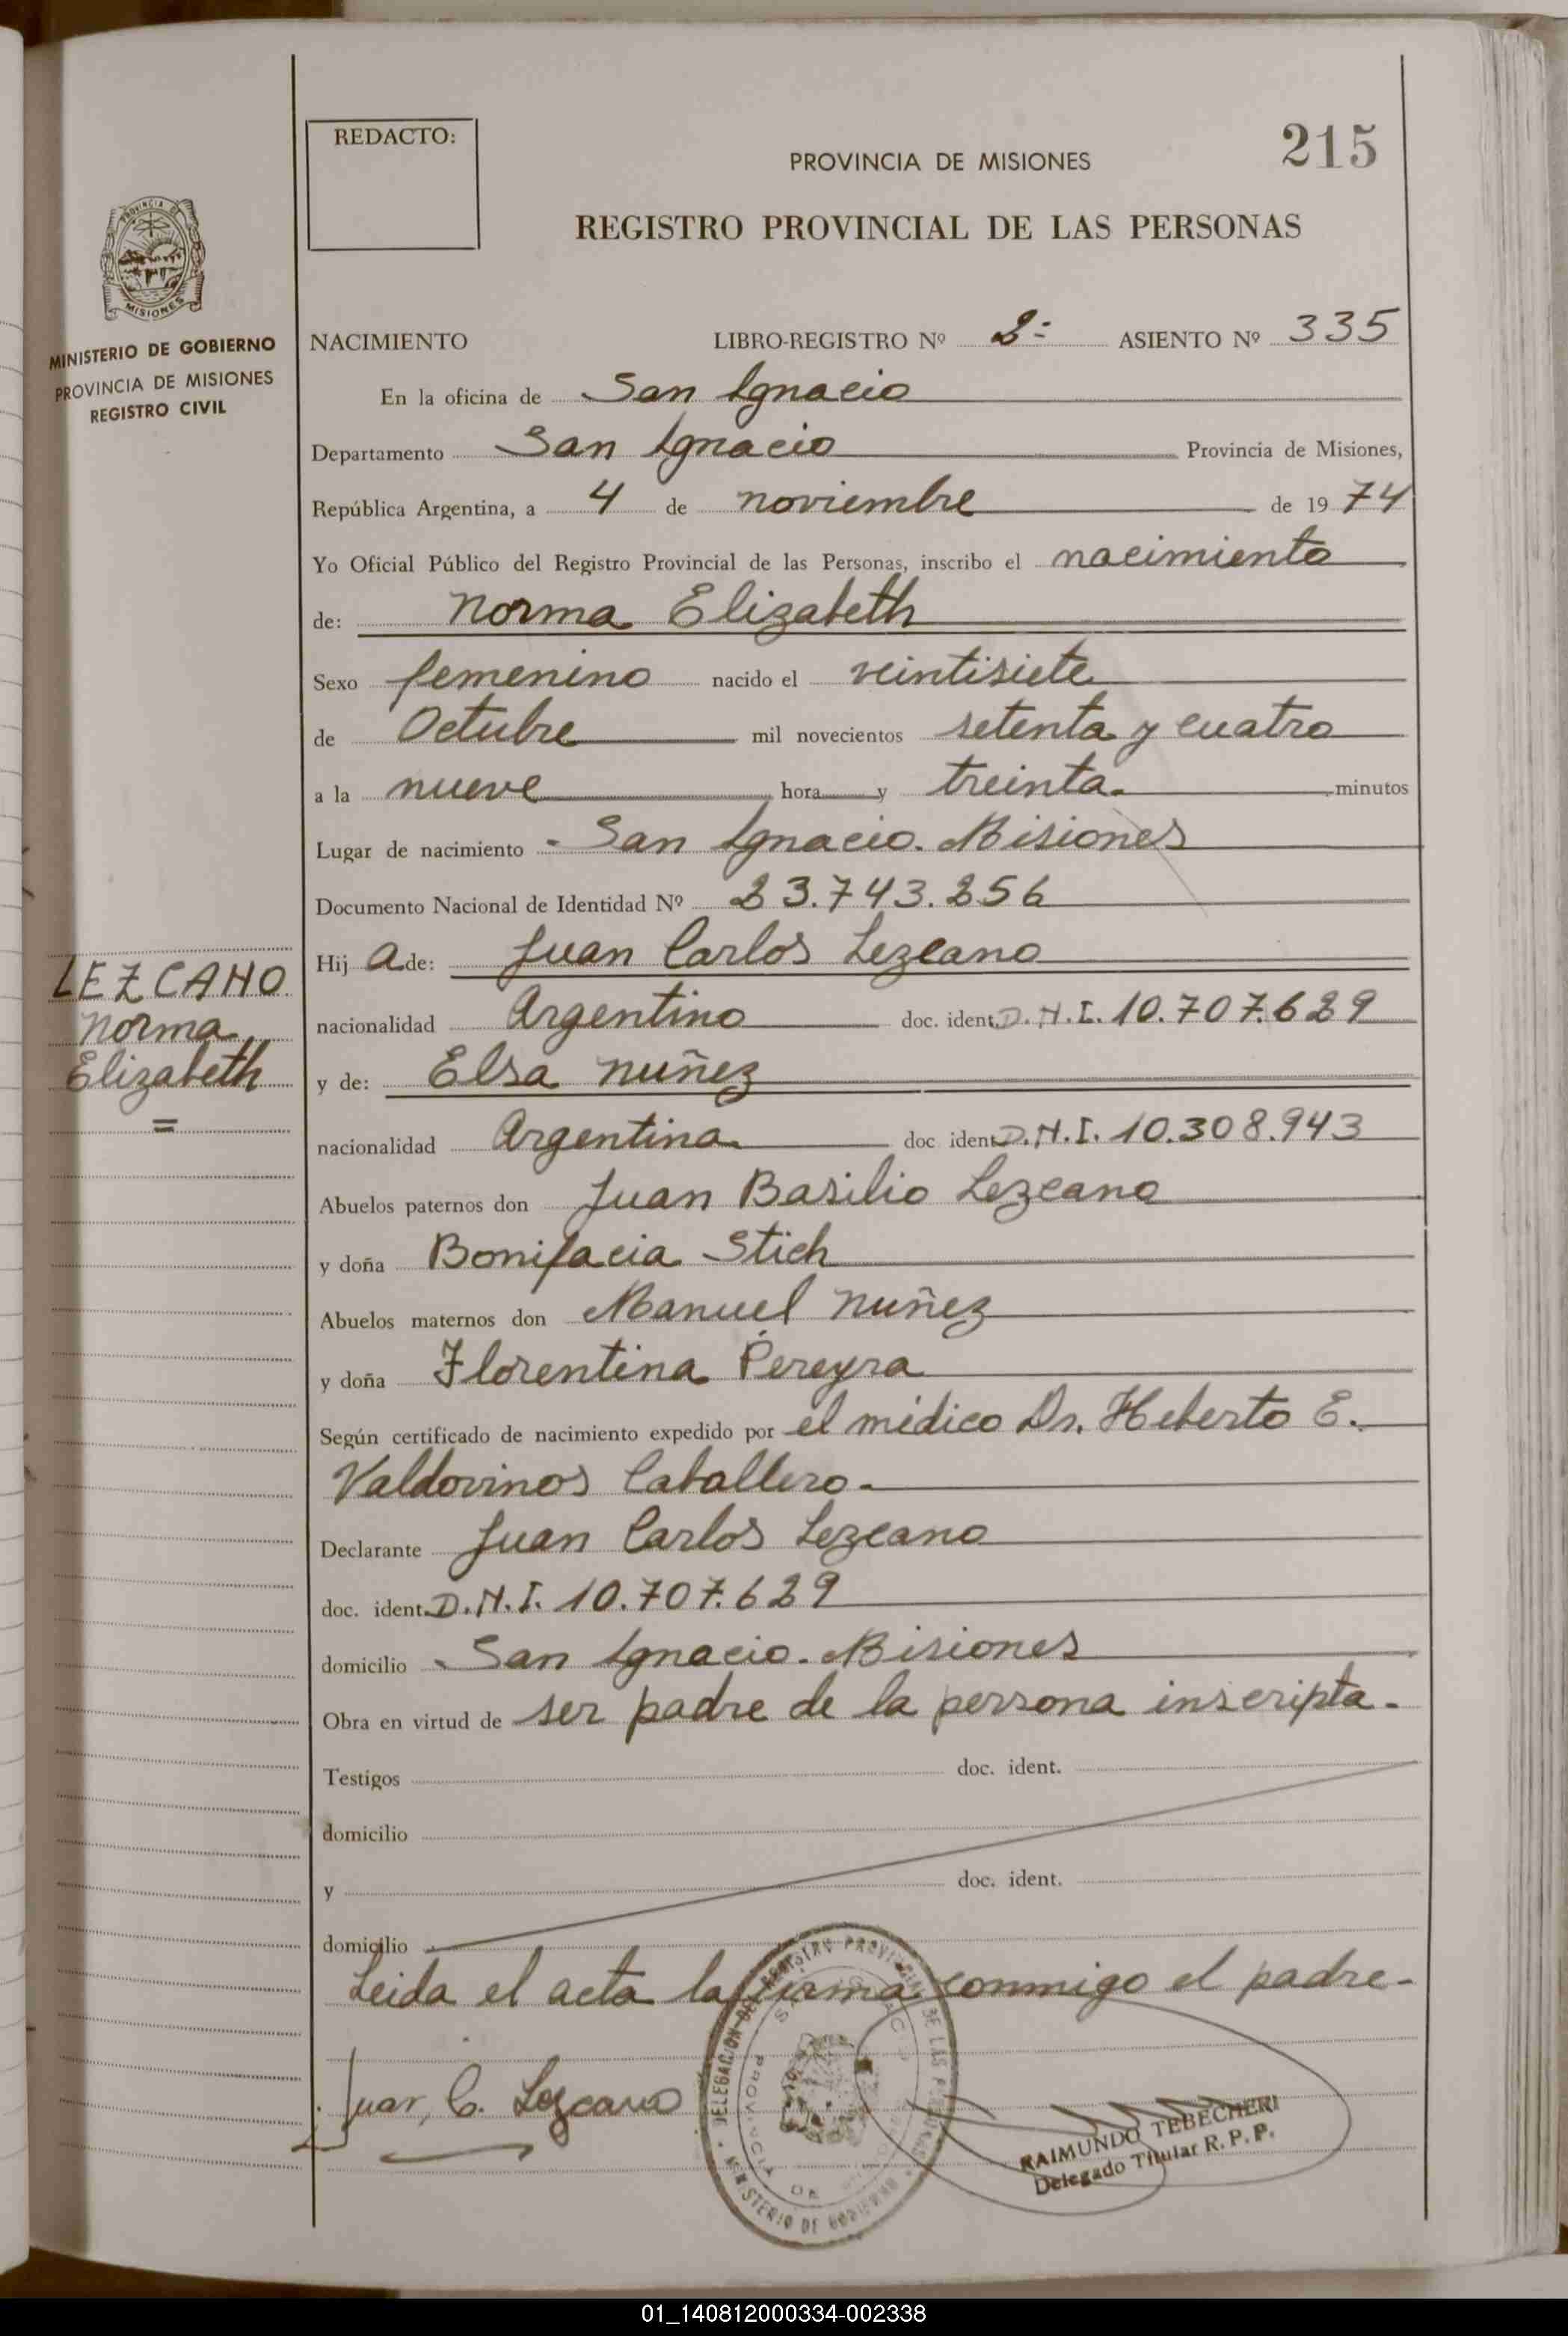 REDACTO:
215
PROVINCIA DE MISIONES
REGISTRO PROVINCIAL DE LAS PERSONAS
PROVINCIA DE
MISIONES
MINISTERIO DE GOBIERNO
PROVINCIA DE MISIONES
REGISTRO CIVIL
NACIMIENTO LIBRO-REGISTRO Nº 2= ASIENTO Nº 335
En la oficina de San Ignacio
Departamento San Ignacio Provincia de Misiones,
República Argentina, a 4 de noviembre de 1974
Yo Oficial Público del Registro Provincial de las Personas, inscribo el nacimiento
de: Norma Elizabeth
Sexo femenino nacido el veintisiete
de Octubre mil novecientos setenta y cuatro
a la nueve hora y treinta minutos
Lugar de nacimiento - San Ignacio. Misiones
Documento Nacional de Identidad Nº 23.743.256
Hij a de: Juan Carlos Lezcano
nacionalidad Argentino doc. ident. D.N.I. 10.707.629
y de: Elsa Nuñez
nacionalidad Argentina doc ident. D.N.I. 10.308.943
LEZCANO
Norma
Elizabeth
=
Abuelos paternos don Juan Basilio Lezcano
y doña Bonifacia Stich
Abuelos maternos don Manuel Nuñez
y doña Florentina Pereyra
Según certificado de nacimiento expedido por el médico Dr. Heberto E.
Valdovinos Caballero.
Declarante Juan Carlos Lezcano
doc. ident. D.N.I. 10.707.629
domicilio - San Ignacio. Misiones
Obra en virtud de ser padre de la persona inscripta.
Testigos doc. ident.
domicilio
y doc. ident.
domicilio
Leida el acta la firma conmigo el padre-
Juan C. Lezcano
DELEGACION DEL REGISTRO PROVINCIAL DE LAS PERSONAS
MINISTERIO DE GOBIERNO
RAIMUNDO TEBECHERI
Delegado Titular R. P. P.
01_140812000334-002338